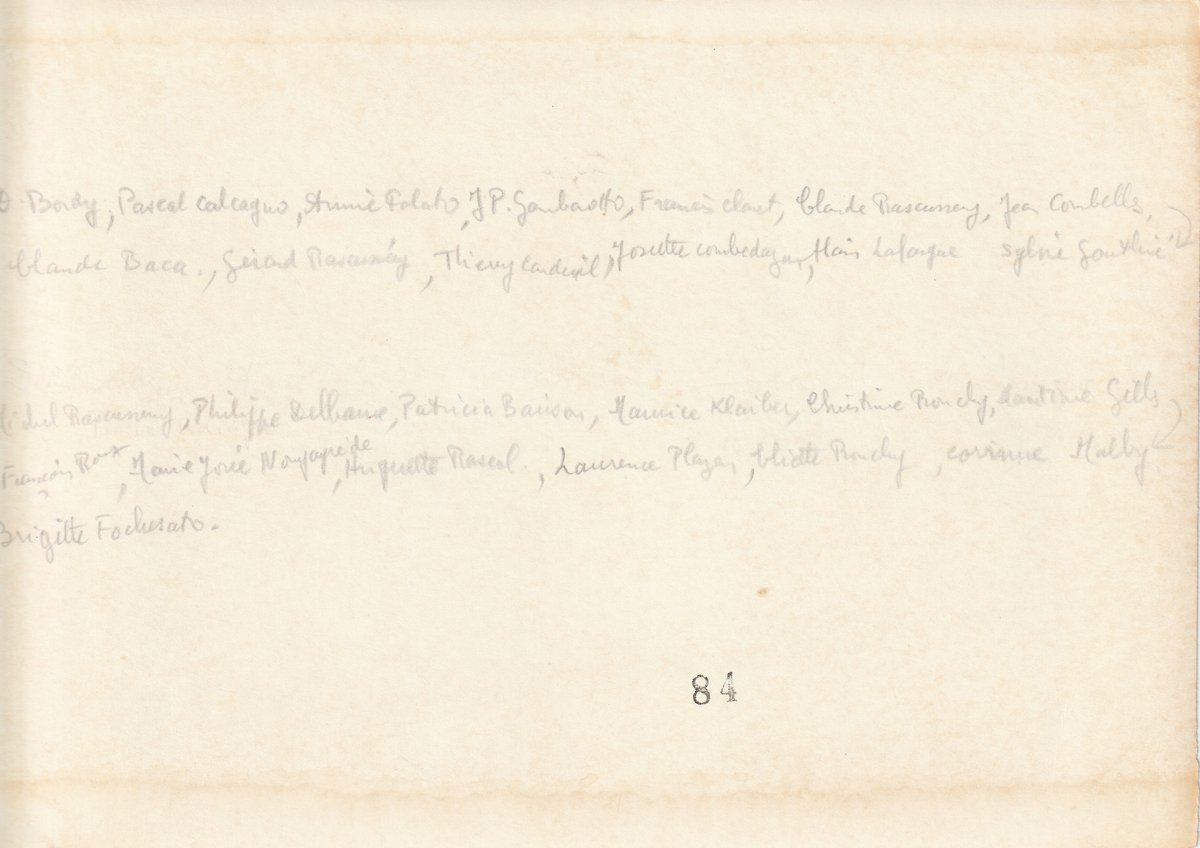 D. Bordy, Pascal Calcagno, Annie Polato, J P. Gambarotto, Francis Claret, Claude Rascussney, Jean Combells,
Claude Baca., Gérard Rascussney, Thierry Cardeil, Josette Combedazou, Alain Lafargue Sylvie Gouthié
Michel Rascussney, Philippe Delbame, Patricia Barison, Maurice Klaiber, Christine Ponchy, Gells
François Roux, Marie José Noyagrède, Huguette Rascol., Laurence Plazas, Ponchy, Corinne Malby
Brigitte Fochesato.
84